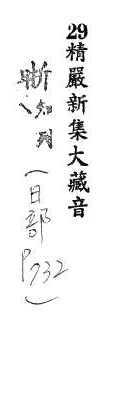 29精嚴新集大藏音
晣、知列(日部P732)